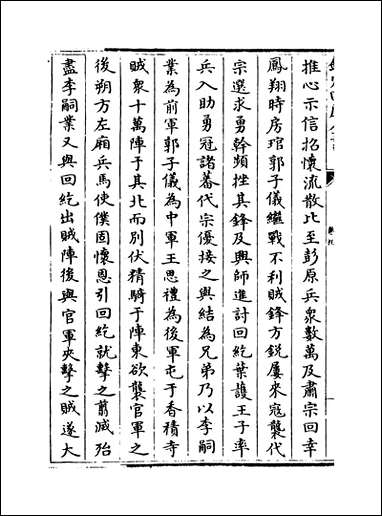 推心示信招懷流散比至彭原兵衆數萬及肅宗回幸
鳳翔時房琯郭子儀繼戰不利賊鋒方銳屢來寇襲代
宗選求勇幹頻挫其鋒及興師進討回紇葉護王子率
兵入助勇冠諸蕃代宗優接之與結為兄弟乃以李嗣
業為前軍郭子儀為中軍王思禮為後軍屯于香積寺
賊衆十萬陣于其北而別伏精騎于陣東欲襲官軍之
後朔方左廂兵馬使僕固懷恩引回紇就擊之翦滅殆
盡李嗣業又與回紇出賊陣後與官軍夾擊之賊遂大